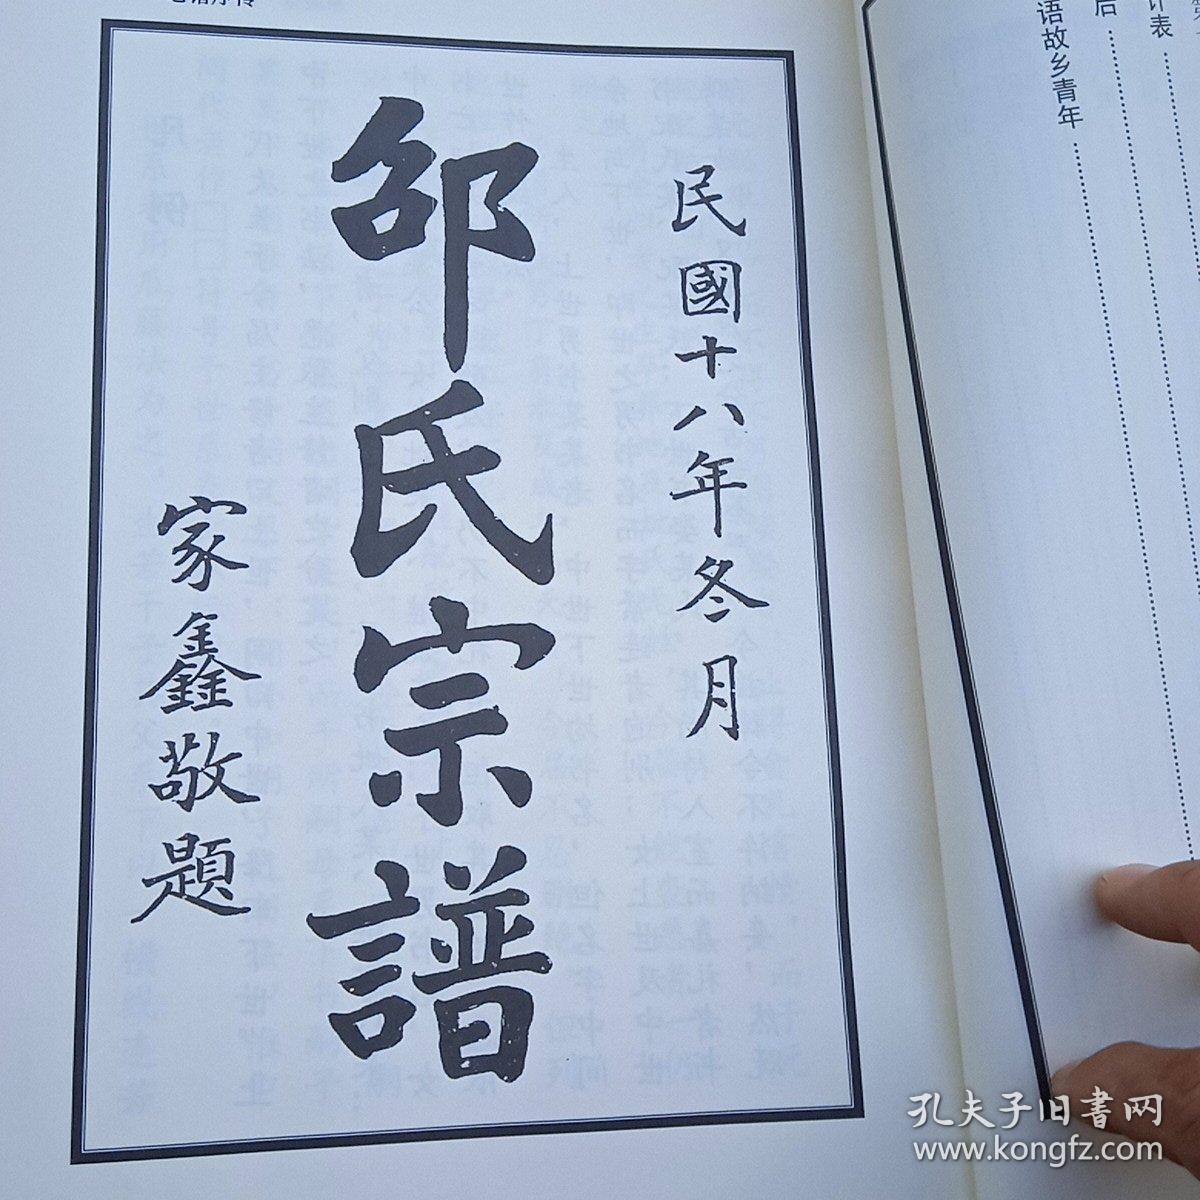 民國十八年冬月
邵氏宗譜
家鑫敬題
后
计表
语故乡青年
孔夫子旧书网
www.kongfz.com